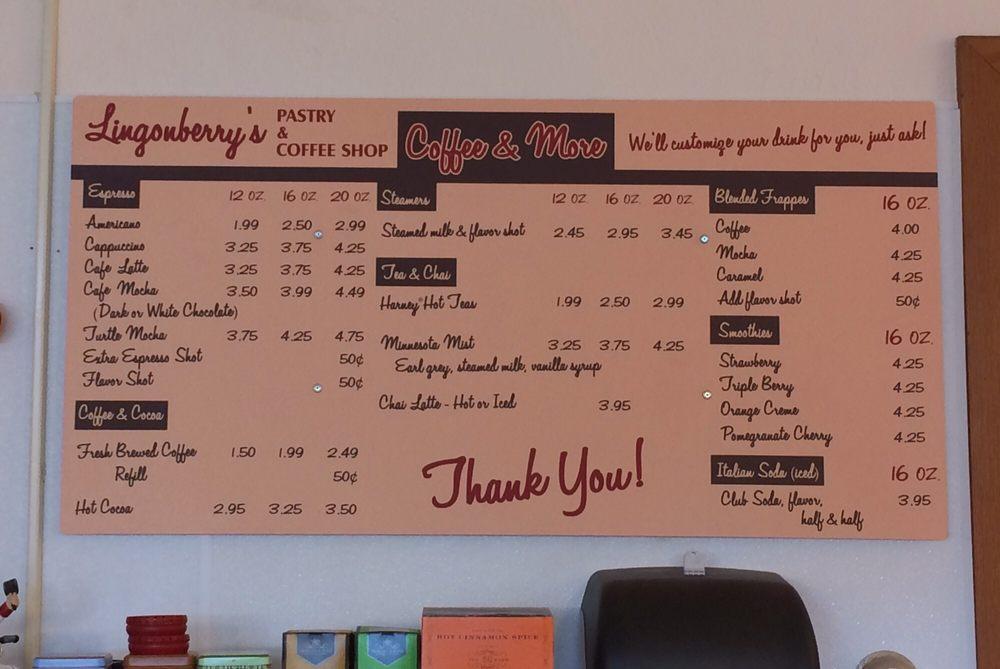 Lingonberry's PASTRY
&
COFFEE SHOP
Coffee & More
We'll customize your drink for you, just ask!
Espresso 12 OZ. 16 OZ. 20 OZ.
Americano 1.99 2.50 2.99
Cappuccino 3.25 3.75 4.25
Cafe Latte 3.25 3.75 4.25
Cafe Mocha 3.50 3.99 4.49
(Dark or White Chocolate)
Turtle Mocha 3.75 4.25 4.75
Extra Espresso Shot 50¢
Flavor Shot 50¢
Coffee & Cocoa
Fresh Brewed Coffee 1.50 1.99 2.49
Refill 50¢
Hot Cocoa 2.95 3.25 3.50
Steamers 12 OZ. 16 OZ. 20 OZ.
Steamed milk & flavor shot 2.45 2.95 3.45
Tea & Chai
Harney® Hot Teas 1.99 2.50 2.99
Minnesota Mist 3.25 3.75 4.25
Earl grey, steamed milk, vanilla syrup
Chai Latte - Hot or Iced 3.95
Thank You!
Blended Frappes 16 OZ.
Coffee 4.00
Mocha 4.25
Caramel 4.25
Add flavor shot 50¢
Smoothies 16 OZ.
Strawberry 4.25
Triple Berry 4.25
Orange Creme 4.25
Pomegranate Cherry 4.25
Italian Soda (iced) 16 OZ.
Club Soda, flavor, 3.95
half & half
HOT CINNAMON SPICE